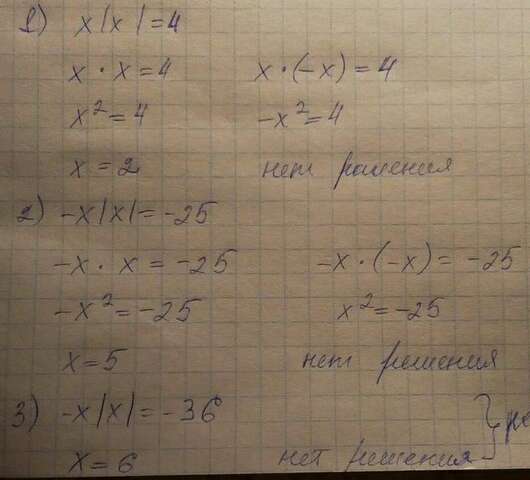 1) x|x|=4
x·x=4 x·(-x)=4
x²=4 -x²=4
x=2 нет решения
2) -x|x|=-25
-x·x=-25 -x·(-x)=-25
-x²=-25 x²=-25
x=5 нет решения
3) -x|x|=-36
x=6 нет решения